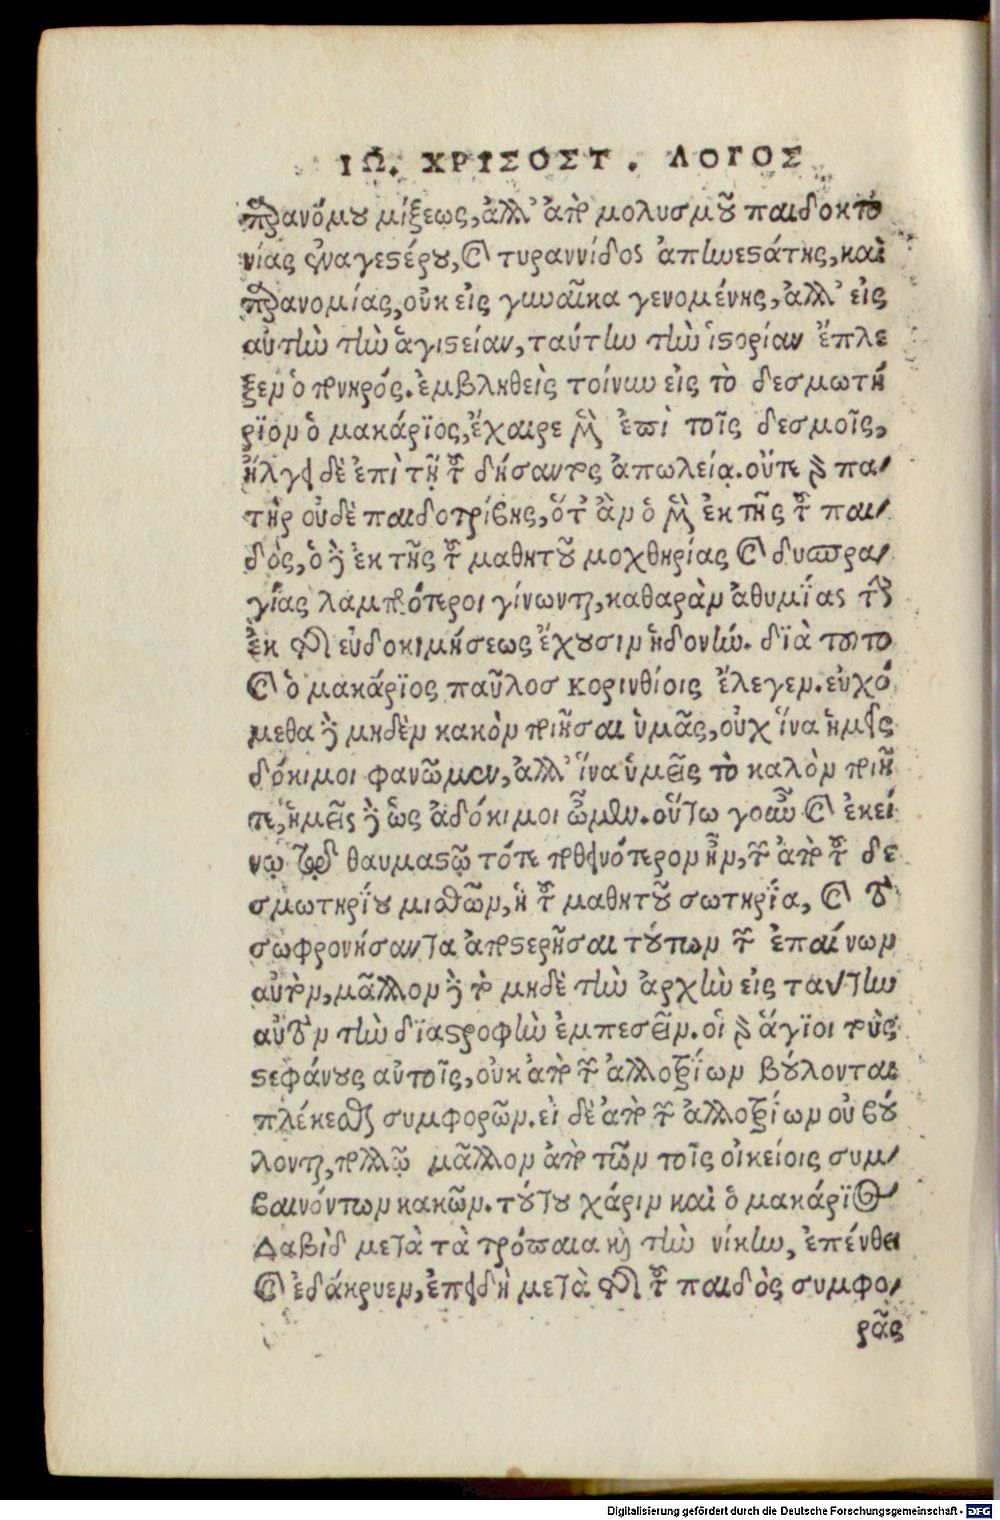 ΙΩ. ΧΡΙΣΟΣΤ. ΛΟΓΟΣ
παρανόμου μίξεως, ἀλλ' ἀπὸ μολυσμοῦ παιδοκτο
νίας ἐναγεστέρου, καὶ τυραννίδος ἀπηνεστάτης, καὶ
παρανομίας, οὐκ εἰς γυναῖκα γενομένης, ἀλλ' εἰς
αὐτὴν τὴν ἁγιστείαν, ταύτην τὴν ἱστορίαν ἔπλε
ξεν ὁ πονηρός. ἐμβληθεὶς τοίνυν εἰς τὸ δεσμωτή
ρϊον ὁ μακάρϊος, ἔχαιρε μὲν ἐπὶ τοῖς δεσμοῖς,
ἤλγει δὲ ἐπὶ τῇ τοῦ δήσαντος ἀπωλείᾳ. οὔτε γὰρ πα-
τὴρ οὐδὲ παιδοτρίβης, ὅτ' ἂν ὁ μὲν ἐκ τῆς τοῦ παι-
δὸς, ὁ δὲ ἐκ τῆς τοῦ μαθητοῦ μοχθηρίας καὶ δυσπρα-
γίας λαμπρότεροι γίνωνται, καθαρὰν ἀθυμΐας τὴν
ἐκ τῆς εὐδοκιμήσεως ἔχουσιν ἡδονήν. δϊὰ τοῦτο
καὶ ὁ μακάρϊος παῦλος κορινθίοις ἔλεγεν. εὐχό
μεθα δὲ μηδὲν κακὸν ποιῆσαι ὑμᾶς, οὐχ ἵνα ἡμεῖς
δόκιμοι φανῶμεν, ἀλλ' ἵνα ὑμεῖς τὸ καλὸν ποιῆ
τε, ἡμεῖς δὲ ὡς ἀδόκιμοι ὦμεν. οὕτω γοῦν καὶ ἐκεί
νῳ τῷ θαυμαστῷ τότε ποθεινότερον ἦν, τῶν ἀπὸ τοῦ δε
σμωτηρΐου μισθῶν, ἡ τοῦ μαθητοῦ σωτηρΐα, καὶ τὸ
σωφρονήσαντα ἀποστερῆσαι τούτων τῶν ἐπαίνων
αὐτὸν, μᾶλλον δὲ τὸ μηδὲ τὴν ἀρχὴν εἰς ταύτην
αὐτὸν τὴν δϊαστροφὴν ἐμπεσεῖν. οἱ γὰρ ἅγϊοι τοὺς
στεφάνους αὐτοῖς, οὐκ ἀπὸ τῶν ἀλλοτρΐων βούλονται
πλέκεσθαι συμφορῶν. εἰ δὲ ἀπὸ τῶν ἀλλοτρΐων οὐ βού
λονται, πολλῷ μᾶλλον ἀπὸ τῶν τοῖς οἰκείοις συμ-
βαινόντων κακῶν. τούτου χάριν καὶ ὁ μακάρϊος
Δαβὶδ μετὰ τὰ τρόπαια καὶ τὴν νίκην, ἐπένθει
καὶ ἐδάκρυεν, ἐπειδὴ μετὰ τῆς τοῦ παιδὸς συμφο-
ρᾶς
Digitalisierung gefördert durch die Deutsche Forschungsgemeinschaft - DFG